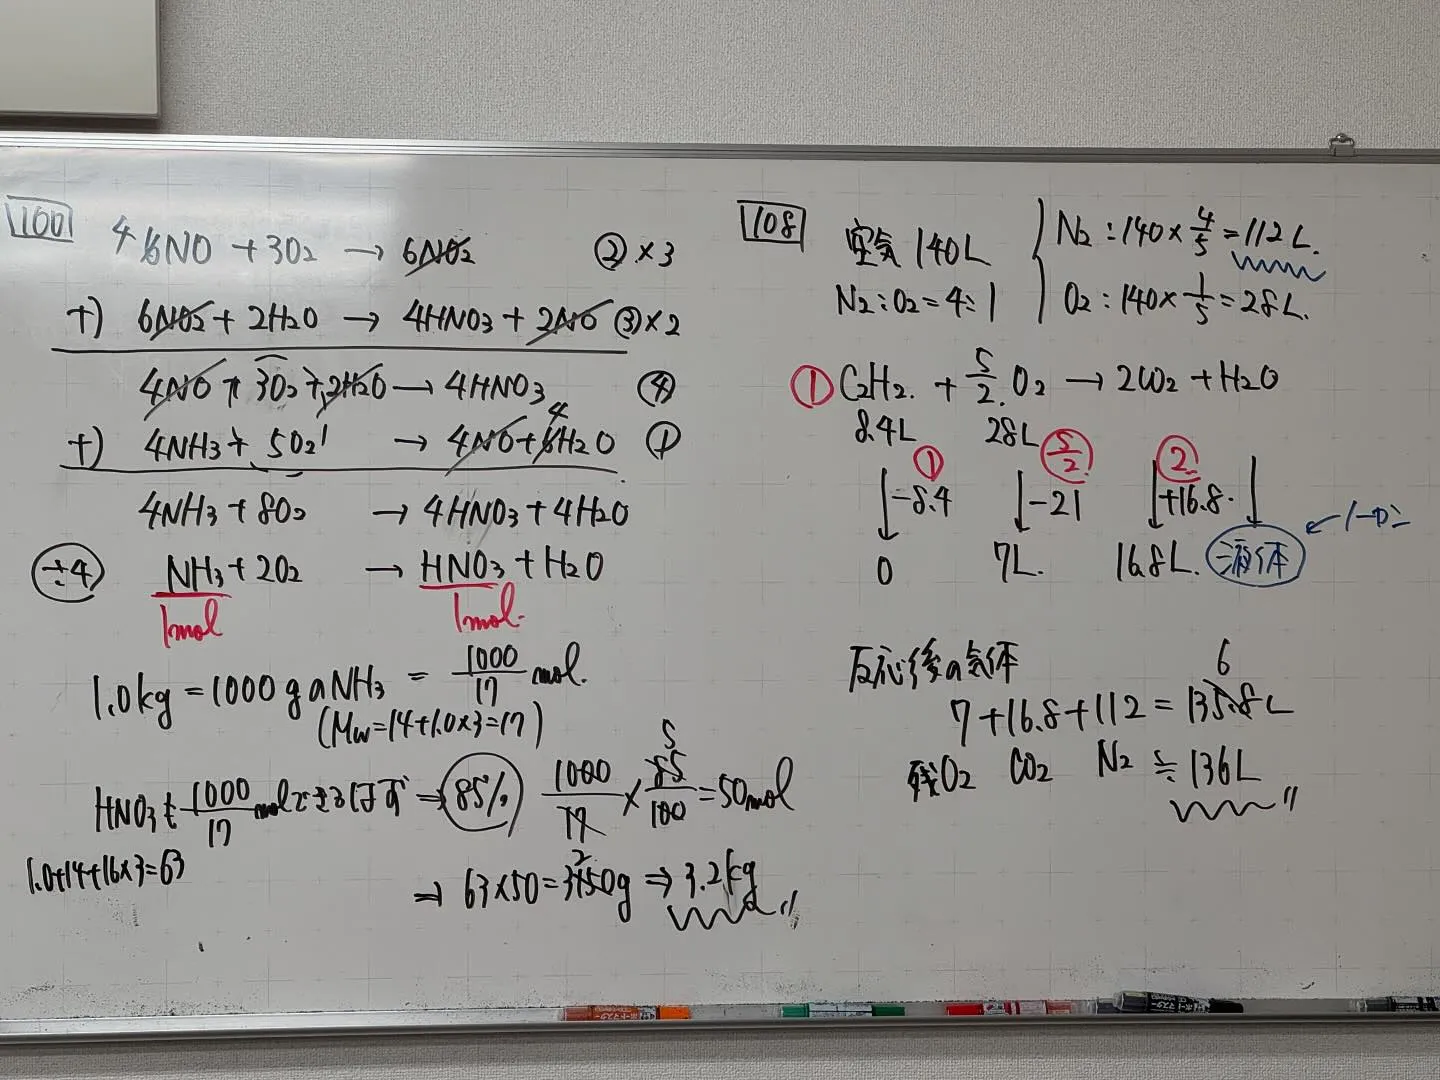 100
4 6NO + 3O2 → 6NO2 ②×3
+) 6NO2 + 2H2O → 4HNO3 + 2NO ③×2
4NO + 3O2 + 2H2O → 4HNO3 ④
+) 4NH3 + 5O2 → 4NO + 6H2O ①
4
4NH3 + 8O2 → 4HNO3 + 4H2O
÷4 NH3 + 2O2 → HNO3 + H2O
1mol 1mol.
1.0kg = 1000gのNH3 = 1000/17 mol.
(Mw=14+1.0×3=17)
HNO3も 1000/17 molできるはず ⇒ 85% 1000/17 × 85/100 = 50mol
5
1.0+14+16×3=63
⇒ 63×50=3150g ⇒ 3.2kg
2
108
空気 140L
N2:O2=4:1
N2:140×4/5=112L.
O2:140×1/5=28L.
① C2H2. + 5/2. O2 → 2CO2 + H2O
8.4L 28L
① 5/2 2
↓-8.4 ↓-21 ↓+16.8. ↓
0 7L. 16.8L. 液体
反応後の気体
6
7+16.8+112=135.8L
残O2 CO2 N2 ≒136L